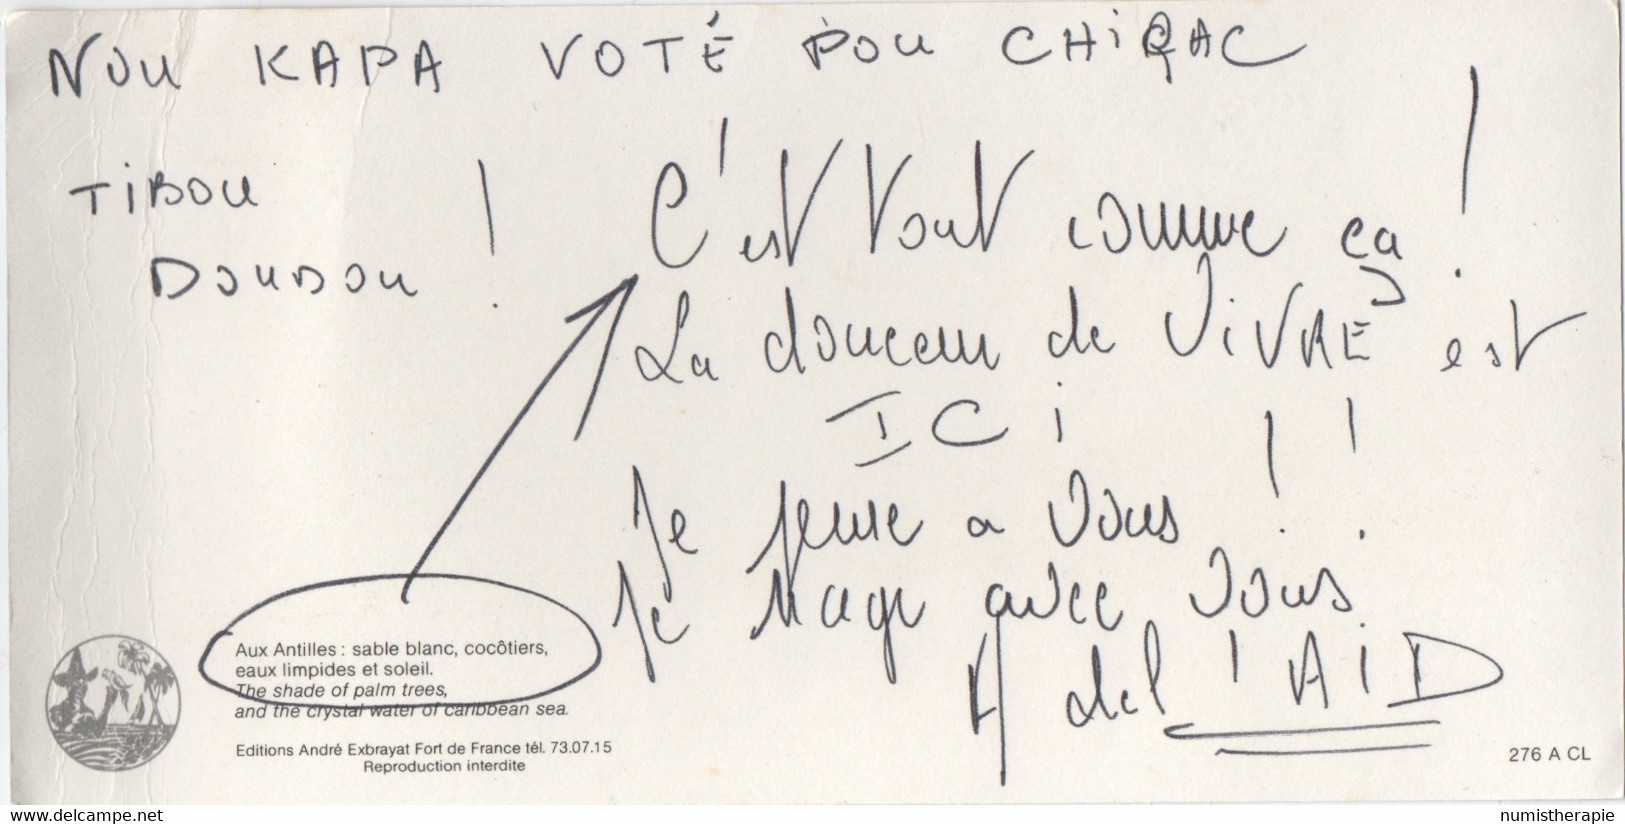 NOU KAPA VOTÉ POU CHIRAC
TIBOU
DOUDOU !
C'est tout comme ça !
La douceur de ViVRE est
ICi !!
Je pense a vous
Je Nage avec vous
A del'AiD
Aux Antilles : sable blanc, cocôtiers,
eaux limpides et soleil.
The shade of palm trees,
and the crystal water of caribbean sea.
Editions André Exbrayat Fort de France tél. 73.07.15
Reproduction interdite
276 A CL
www.delcampe.net
numistherapie